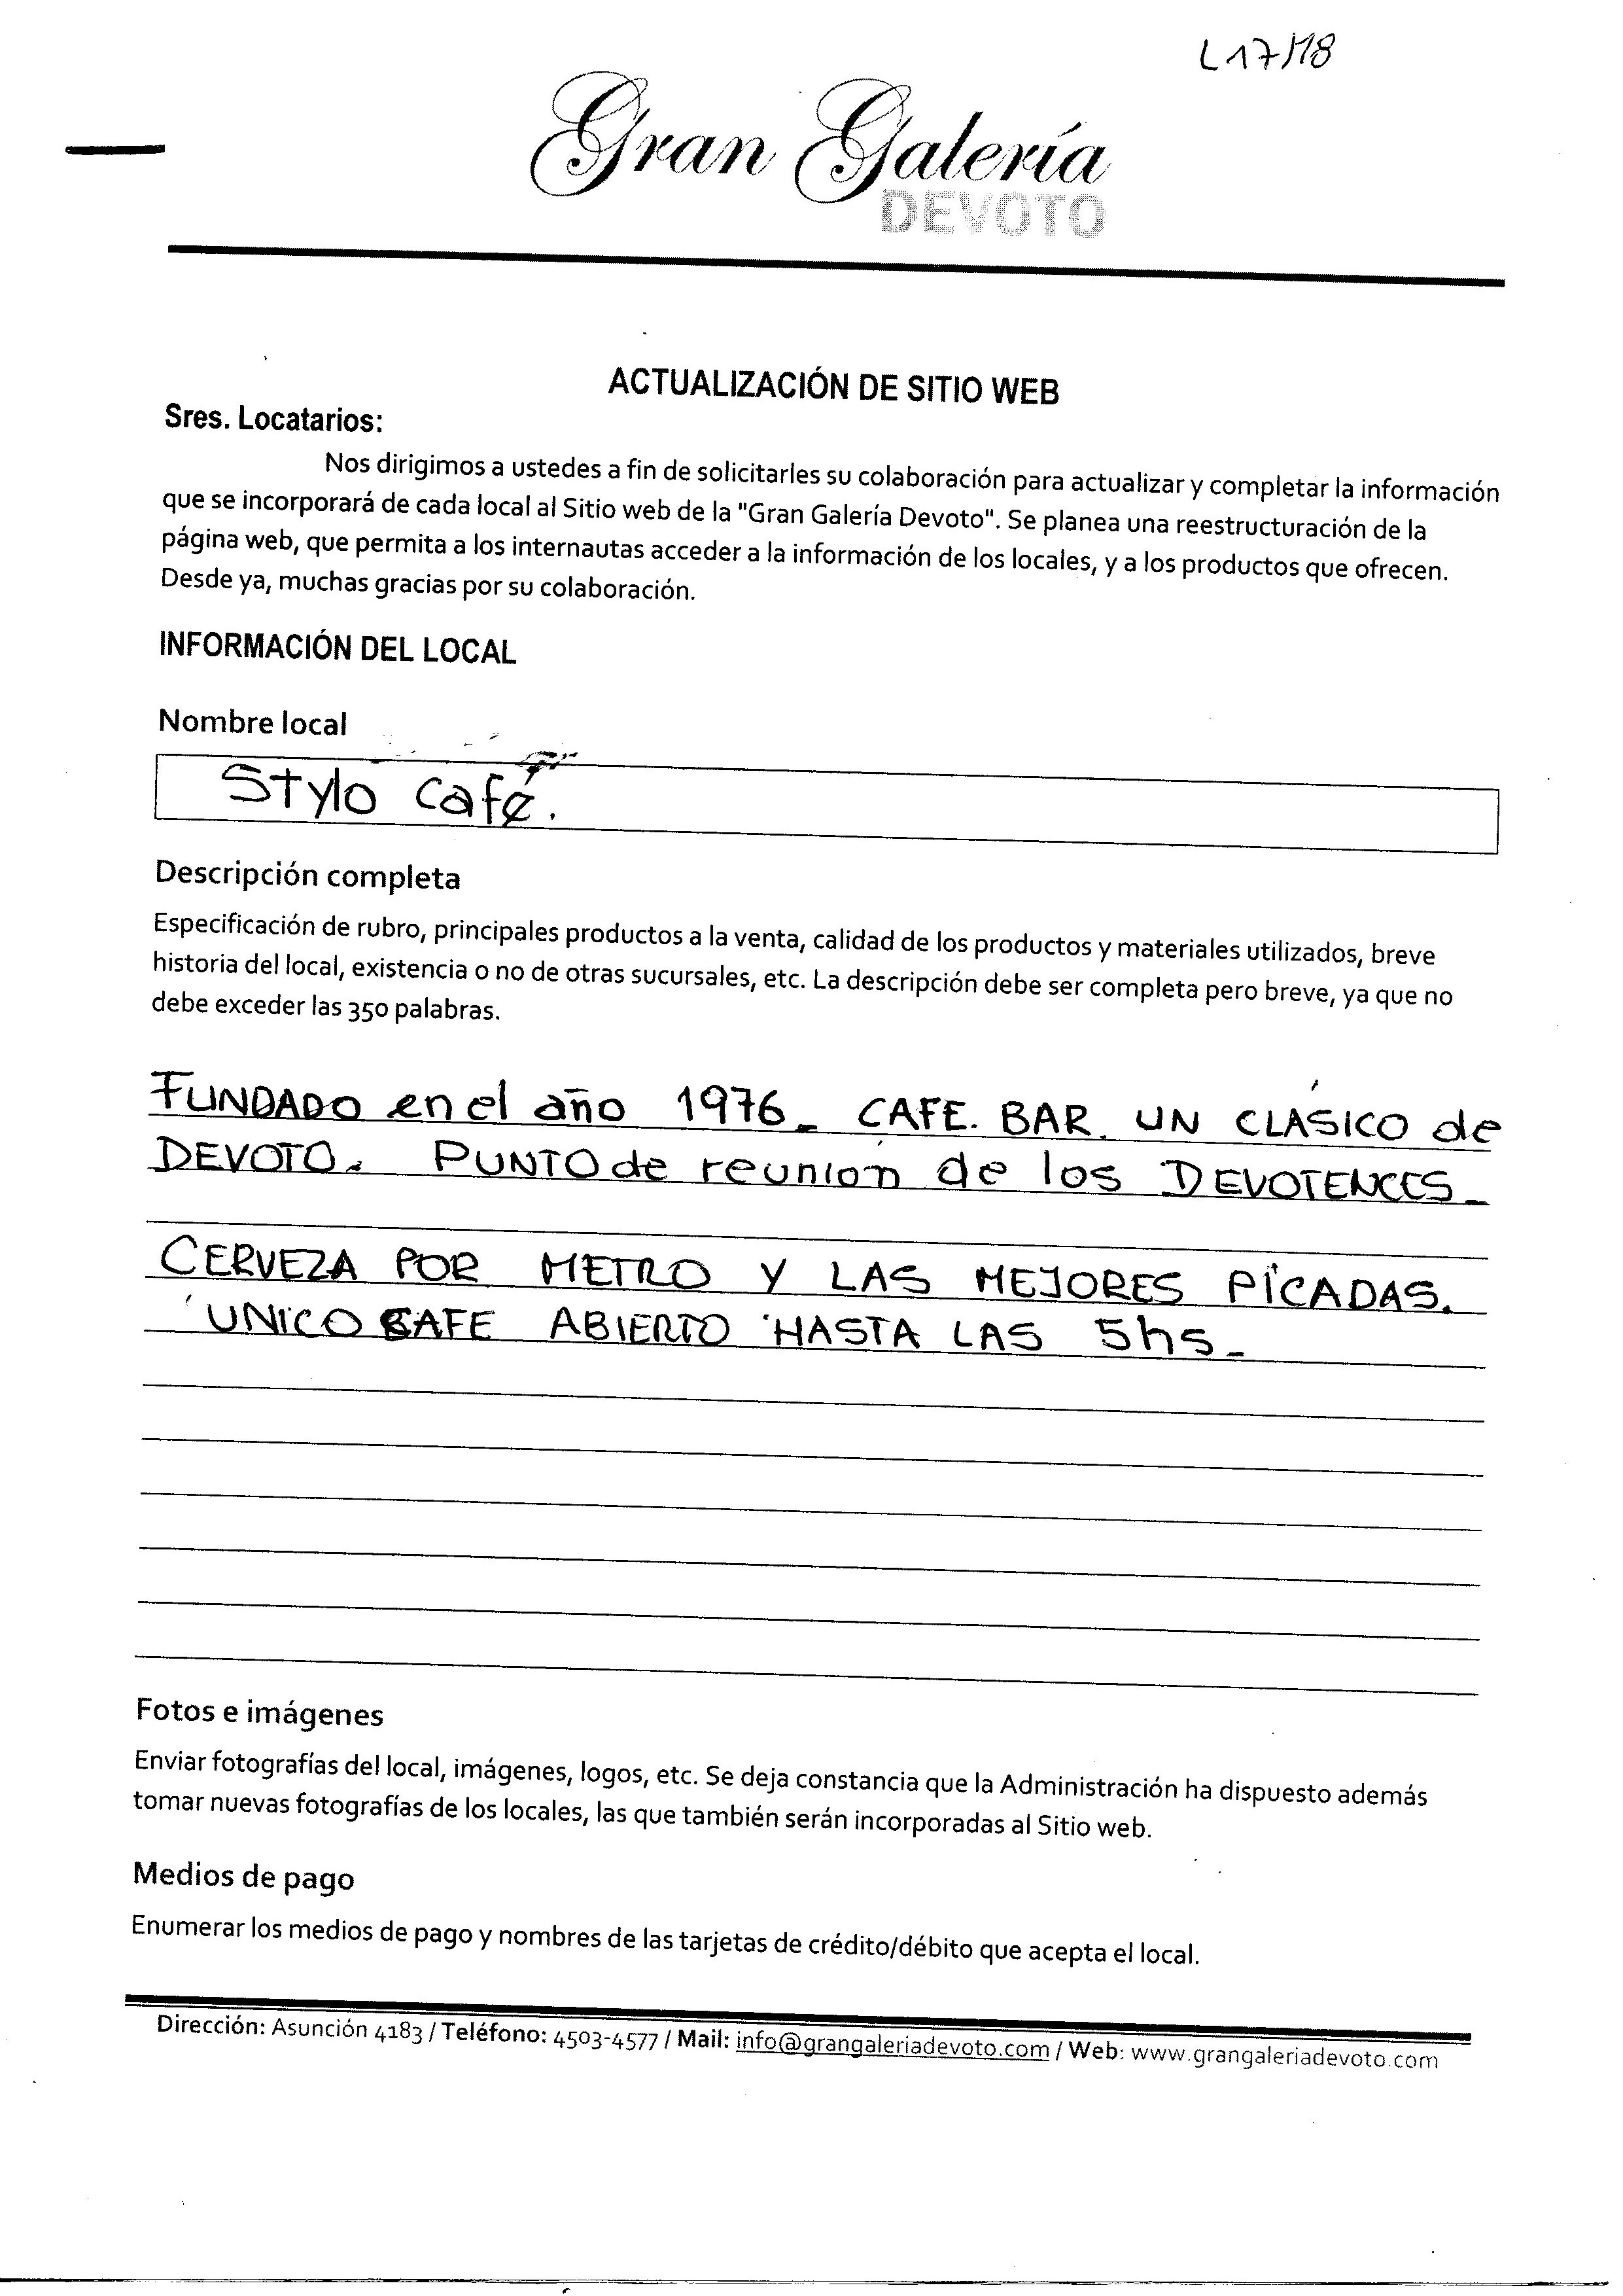 L 17/18
Gran Galería
DEVOTO
ACTUALIZACIÓN DE SITIO WEB
Sres. Locatarios:
Nos dirigimos a ustedes a fin de solicitarles su colaboración para actualizar y completar la información
que se incorporará de cada local al Sitio web de la "Gran Galería Devoto". Se planea una reestructuración de la
página web, que permita a los internautas acceder a la información de los locales, y a los productos que ofrecen.
Desde ya, muchas gracias por su colaboración.
INFORMACIÓN DEL LOCAL
Nombre local
Stylo Café.
Descripción completa
Especificación de rubro, principales productos a la venta, calidad de los productos y materiales utilizados, breve
historia del local, existencia o no de otras sucursales, etc. La descripción debe ser completa pero breve, ya que no
debe exceder las 350 palabras.
FUNDADO en el año 1976_ CAFE. BAR. UN CLÁSICO de
DEVOTO. PUNTO de reunión de los DEVOTENCES_
CERVEZA POR METRO Y LAS MEJORES PICADAS.
UNICO CAFE ABIERTO HASTA LAS 5hs_
Fotos e imágenes
Enviar fotografías del local, imágenes, logos, etc. Se deja constancia que la Administración ha dispuesto además
tomar nuevas fotografías de los locales, las que también serán incorporadas al Sitio web.
Medios de pago
Enumerar los medios de pago y nombres de las tarjetas de crédito/débito que acepta el local.
Dirección: Asunción 4183 / Teléfono: 4503-4577 / Mail: info@grangaleriadevoto.com / Web: www.grangaleriadevoto.com